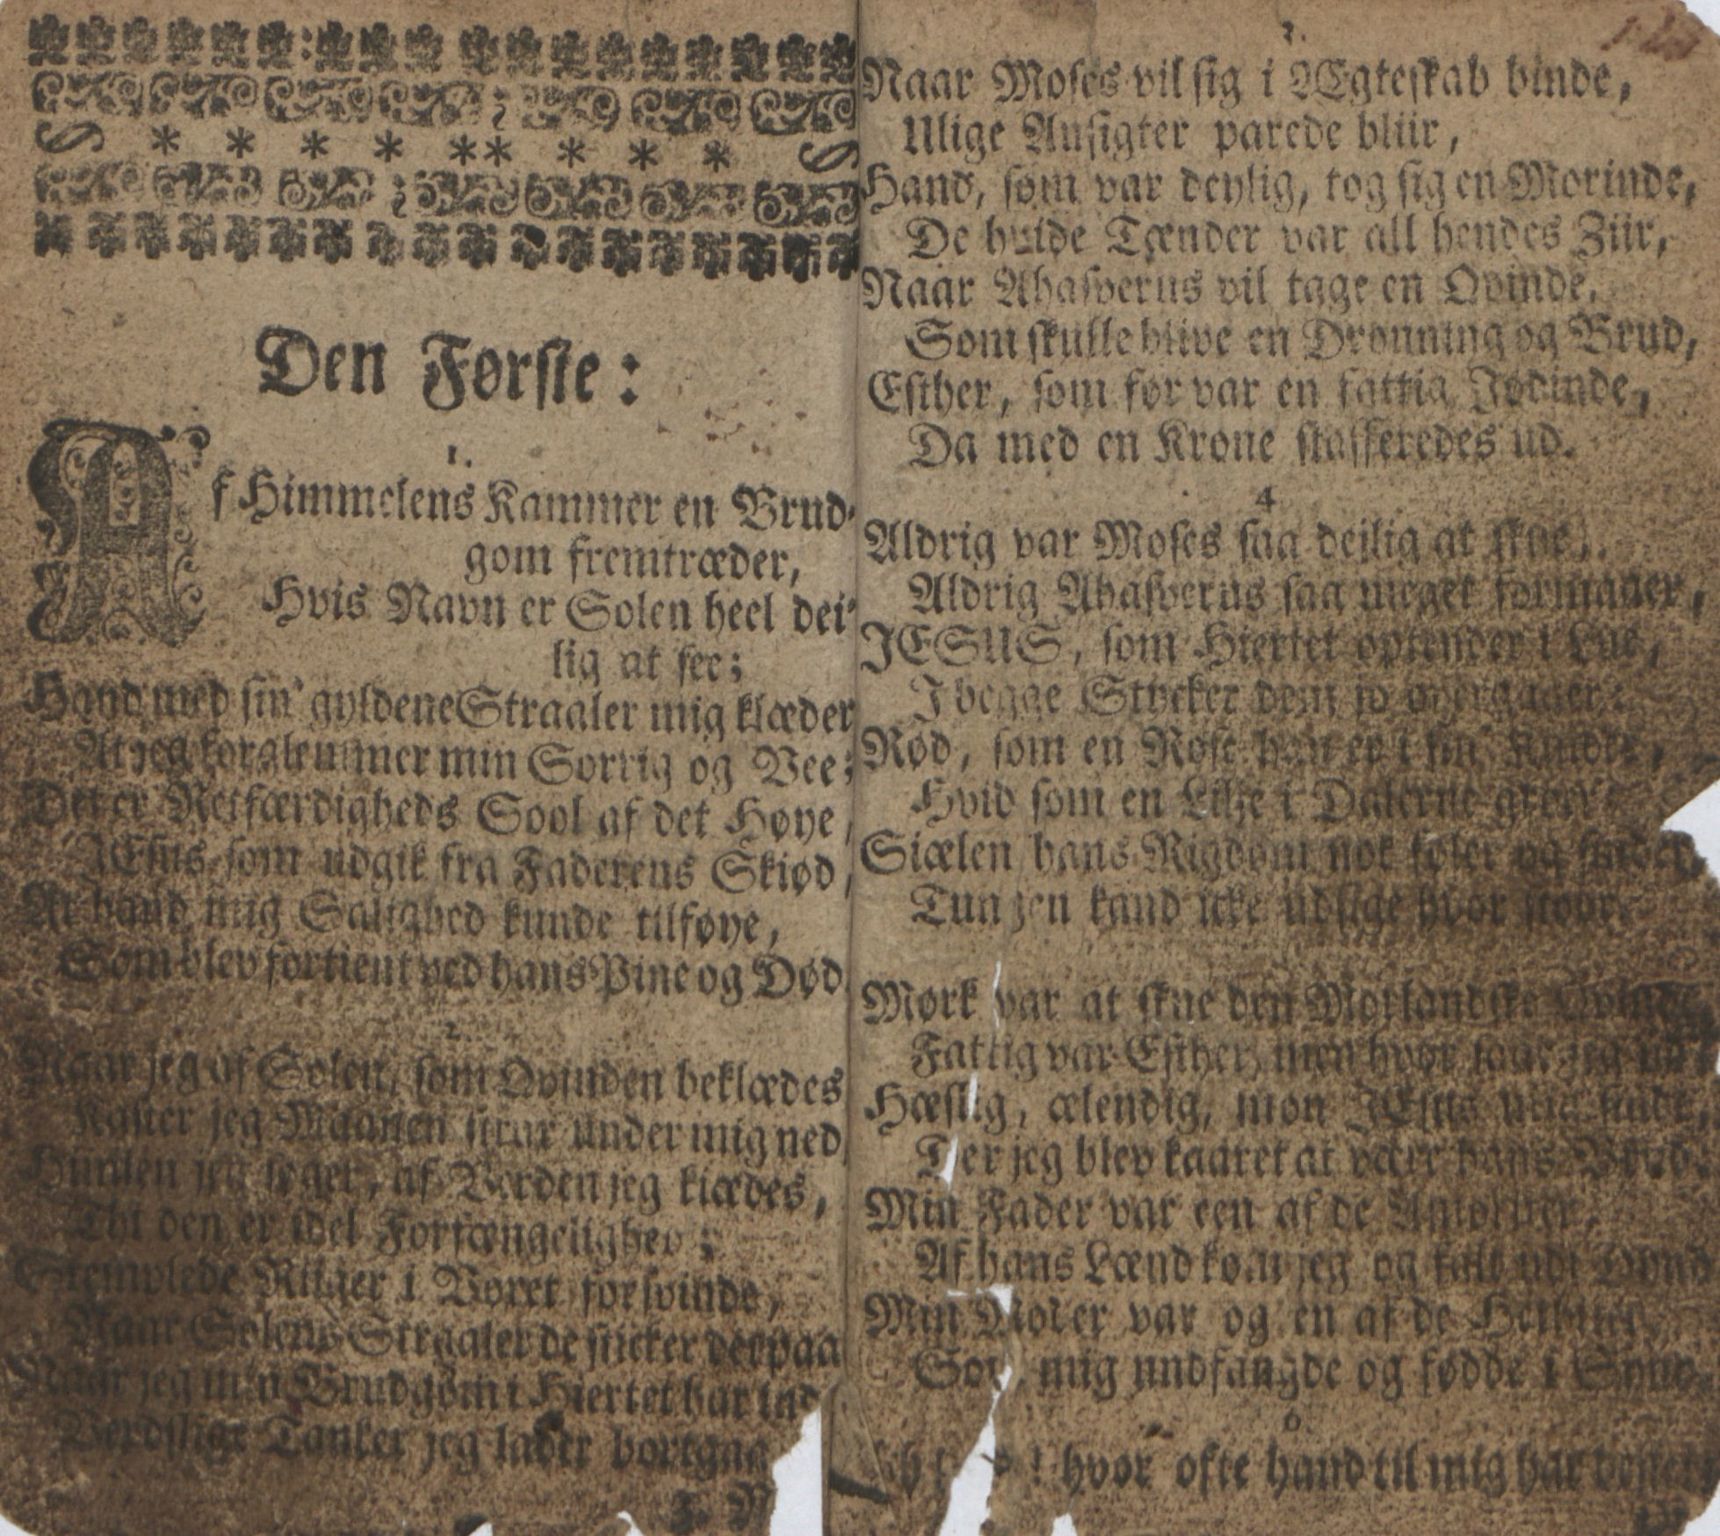 Den Første:
1.
Af Himmelens Kammer en Brud-
gom fremtræder,
Hvis Navn er Solen heel dei-
lig at see;
Hand med sin gyldene Straaler mig klæder
At jeg forglemmer min Sorrig og Vee;
Det er Retfærdigheds Sool af det Høye,
JEsus som udgik fra Faderens Skiød,
At hand mig Salighed kunde tilføye,
Som blev fortient ved hans Pine og Død
2.
Naar jeg af Solen, som Qvinden beklædes
Kaster jeg Maanen strax under mig ned
Himlen jeg søger, af Verden jeg kiædes,
Thi den er idel Forfængelighed;
Stemplede Ringer i Voxet forsvinde,
Naar Solens Straaler de stikker derpaa
Naar jeg min Brudgom i Hiertet har ind
Verdslige Tanker jeg lader bortgaa
3. N
3.
Naar Moses vil sig i Ægteskab binde,
Ulige Ansigter parede bliir,
Hand, som var deylig, tog sig en Morinde,
De hvide Tænder var all hendes Ziir,
Naar Ahasverus vil tage en Qvinde,
Som skulle blive en Dronning og Brud,
Esther, som før var en fattig Jødinde,
Da med en Krone stafferedes ud.
4
Aldrig var Moses saa dejlig at skue,
Aldrig Ahasverus saa meget formaaer,
JESUS, som Hiertet optender i Lue,
I begge Stycker dem jo overgaaer:
Rød, som en Rose han er i sin Kinder,
Hvid som en Lilje i Dalerne
Siælen hans Rigdom nok føler og finder,
Tungen kand icke udsige hvor stoor.
Mørk var at skue den Morlandske Qvinde
Fattig var Esther, men hvor
Hæslig, ælendig, mon JEsus mig finde,
Der jeg blev kaaret at være hans Brud.
Min Fader var een af de Amoriter,
Af hans Lænd kom jeg og
Min Moder var og en af de Hethiter,
Som mig undfangde og fødde i Synd.
6.
hvor ofte hand til mig har